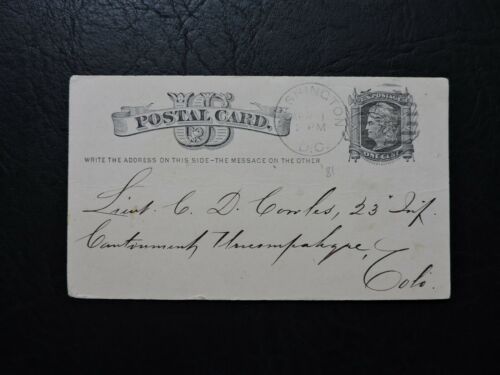 US
POSTAL CARD.
WASHINGTON
1 PM
D.C.
U.S. POSTAGE
ONE CENT
WRITE THE ADDRESS ON THIS SIDE-THE MESSAGE ON THE OTHER
'81
Lieut. C. D. Cowles, 23" Inf.
Cantonment Uncompahgre,
Colo.